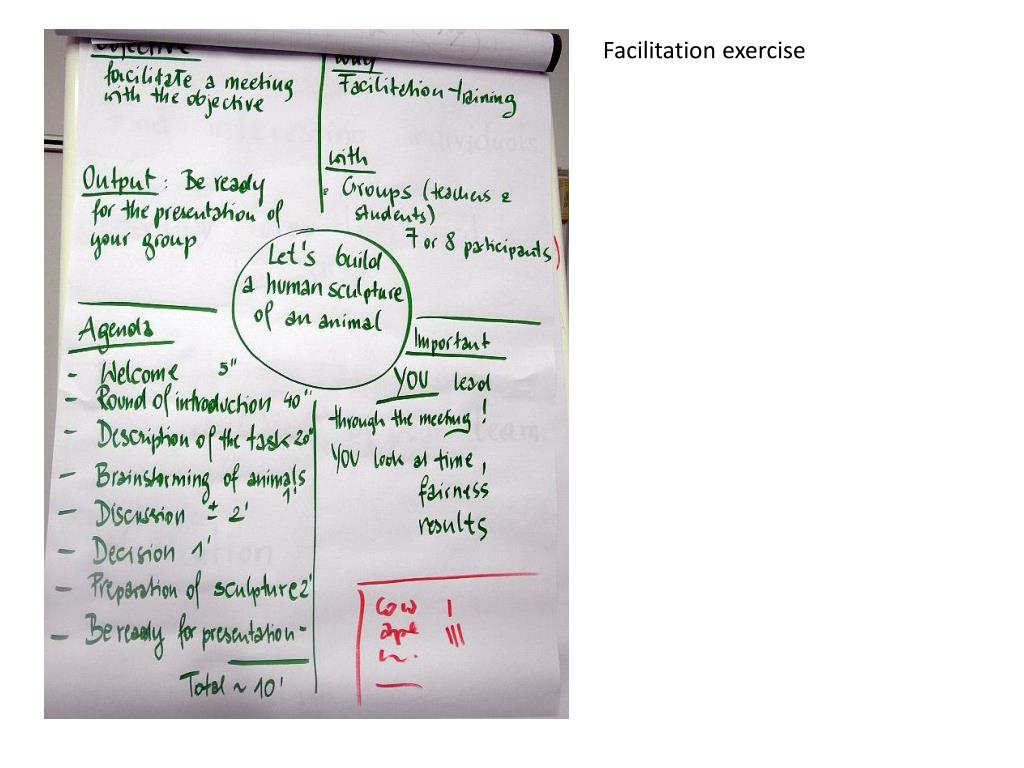 Facilitation exercise
Objective
facilitate a meeting
with the objective
Why
Facilitation training
with
Groups (teachers &
students)
7 or 8 participants)
Output: Be ready
for the presentation of
your group
Let's build
a human sculpture
of an animal
Agenda
- Welcome 5"
- Round of introduction 40"
- Description of the task 20"
- Brainstorming of animals
1'
- Discussion ± 2'
- Decision 1'
- Preparation of sculpture 2'
- Be ready for presentation -
Total ~ 10'
Important
YOU lead
through the meeting!
YOU look at time,
fairness
results
cow I
ape III